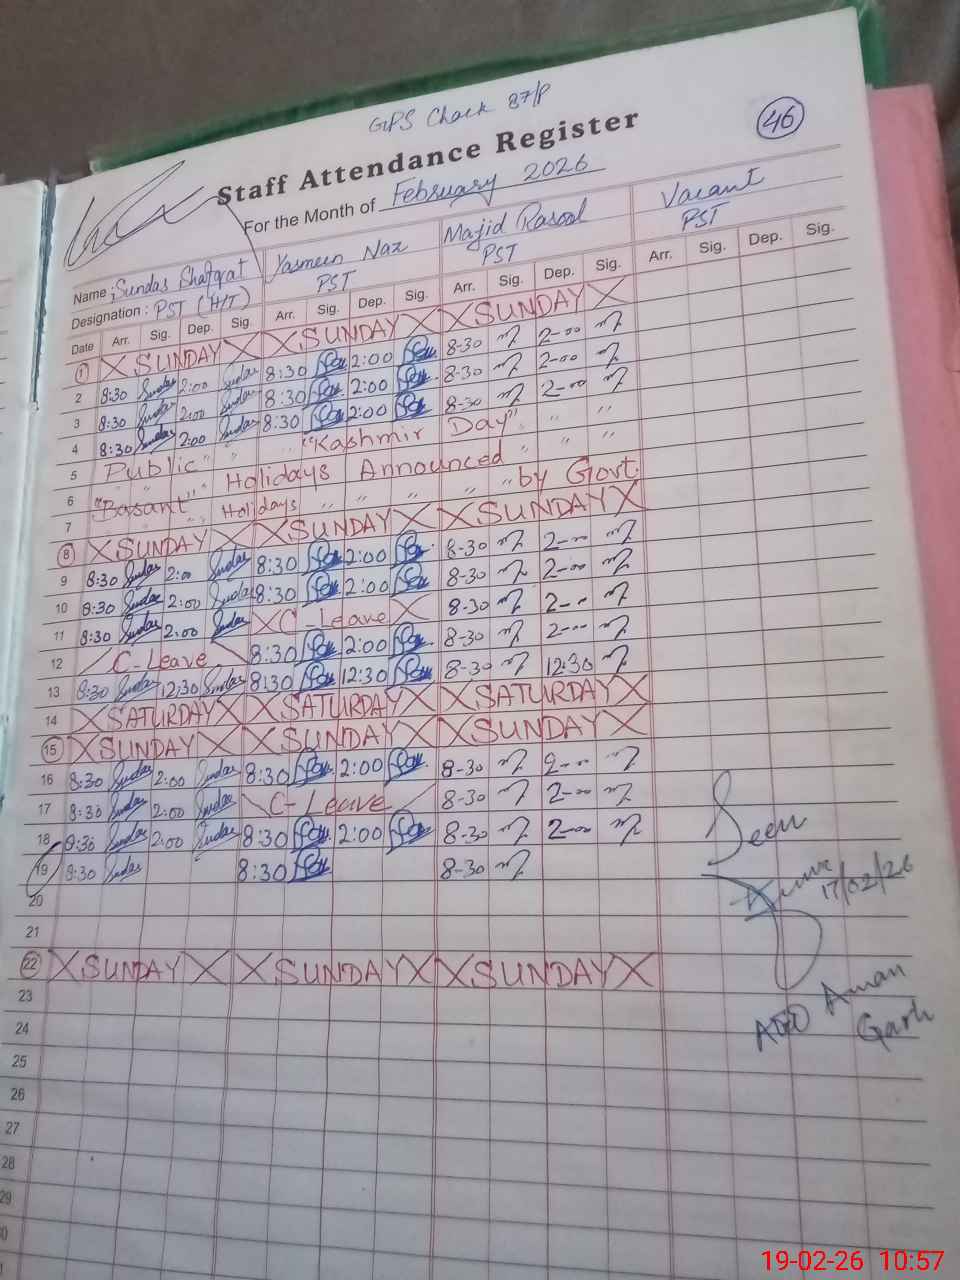 GPS Chack 87/P
46
Staff Attendance Register
For the Month of February 2026
Name: Sundas Shafqat Yasmeen Naz Majid Rasool Vacant
Designation: PST (H/T) PST PST PST
Date Arr. Sig. Dep. Sig. Arr. Sig. Dep. Sig. Arr. Sig. Dep. Sig. Arr. Sig. Dep. Sig.
1 X SUNDAY X X SUNDAY X X SUNDAY X
2 8:30 Sundas 2:00 Sundas 8:30 2:00 8-30 2-00
3 8:30 Sundas 2:00 Sundas 8:30 2:00 8-30 2-00
4 8:30 Sundas 2:00 Sundas 8:30 2:00 8-30 2-00
5 Public " " "Kashmir Day" " " "
6 "Basant" Holidays Announced " " " by Govt.
7 " " Holidays " " " "
8 X SUNDAY X X SUNDAY X X SUNDAY X
9 8:30 Sundas 2:00 Sundas 8:30 2:00 8-30 2-00
10 8:30 Sundas 2:00 Sundas 8:30 2:00 8-30 2-00
11 8:30 Sundas 2:00 Sundas X C-Leave X 8-30 2-00
12 C-Leave 8:30 2:00 8-30 2-00
13 8:30 Sundas 12:30 Sundas 8:30 12:30 8-30 12:30
14 X SATURDAY X X SATURDAY X X SATURDAY X
15 X SUNDAY X X SUNDAY X X SUNDAY X
16 8:30 Sundas 2:00 Sundas 8:30 2:00 8-30 2-00
17 8:30 Sundas 2:00 Sundas C-Leave 8-30 2-00
18 8:30 Sundas 2:00 Sundas 8:30 2:00 8-30 2-00
19 8:30 Sundas 8:30 8-30
20
21
22 X SUNDAY X X SUNDAY X X SUNDAY X
23
24
25
26
27
28
29
Seen
17/02/26
AEO Aman
Garh
19-02-26 10:57